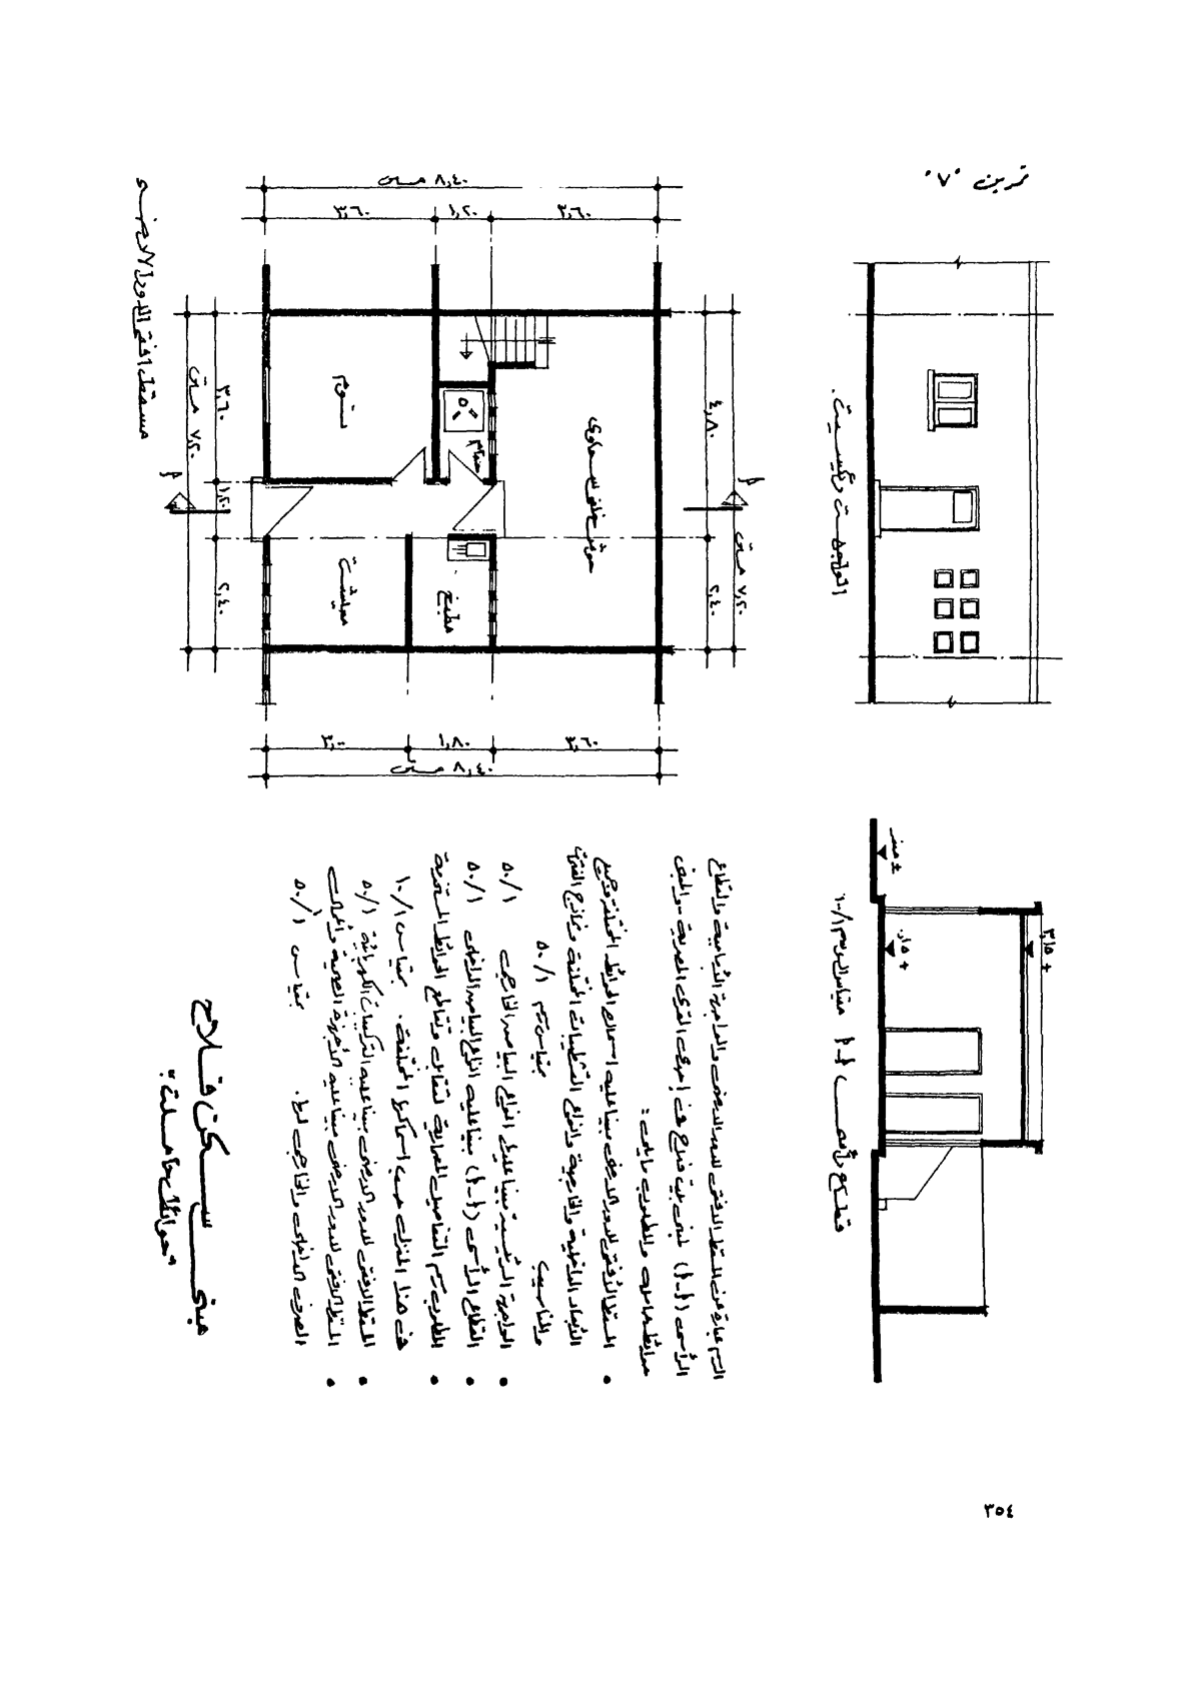 تمرين "٧"
الواجهة الرئيسية.
مسقط افقى الدور الأرضى
٨,٤٠ متر
٣,٦٠
١,٢٠
٣,٦٠
٤,٨٠
٢,٤٠
٧,٢٠ متر
٣,٦٠
١,٢٠
٢,٤٠
٧,٢٠ متر
نوم
حمام
حوش خلفى سماوى
معيشة
مطبخ
أ
أ
٣,٠٠
١,٨٠
٣,٦٠
٨,٤٠ متر
± صفر
+ ٠,١٥
+ ٣,١٥
قطاع رأسى أ-أ مقياس الرسم ١/١٠٠
الرسم عبارة عن المسقط الافقى للدور الارضى والواجهة الأمامية والقطاع
الرأسى (أ-أ) لمبنى بيت فلاح فى إحدى القرى المصرية - والمبنى
حوائط حاملة والمطلوب مايلى :
• المسقط الأفقى للدور الارضى مبينا عليه اسماك الحوائط المختلفة وجميع
الأبعاد الداخلية والخارجية وانواع التشطيبات المختلفة ونماذج الفتحات
والمناسيب بمقياس رسم ١/٥٠
• الواجهة الرئيسية مبينا عليها انواع البياض الخارجى ١/٥٠
• القطاع الرأسى (أ-أ) مبينا عليه انواع البياض الداخلى ١/٥٠
• المطلوب رسم التفاصيل المعمارية لتقابل وتقاطع الحوائط المستخدمة
فى هذا المنزل حسب اسماكها المختلفة. بمقياس ١/١٠
• المسقط الافقى للدور الارضى مبينا عليه التركيبات الكهربائية ١/٥٠
• المسقط الافقى للدور الارضى مبينا عليه الأجهزة الصحية وأعمال
الصرف الداخلى والخارجى لها. بمقياس ١/٥٠
مبنى سكن فلاح
"حوائط حاملة"
٣٥٤